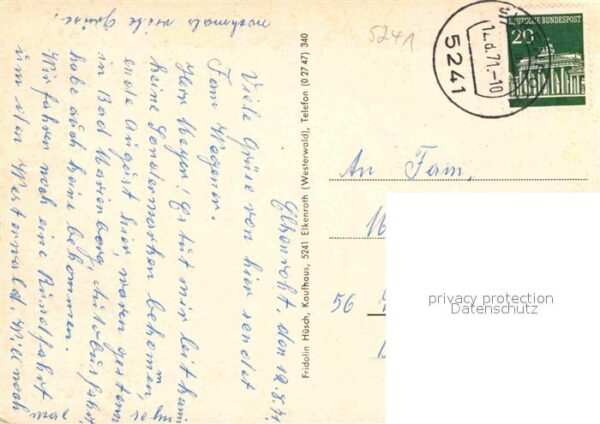 nochmals viele Grüße!
Elkenroth, den 12.8.71
Viele Grüße von hier sendet
Fam. Wagener.
Herr Meyer! Es tut mir leit kann
keine Sondermarken bekomen,
ende August hier, waren gestern
in Bad Marienberg, Autobusfahrt,
habe auch keine bekommen.
Wir fahren noch eine Rundfahrt
um den Westerwald. Will noch
mal
sehn
Fridolin Hüsch, Kaufhaus, 5241 Elkenroth (Westerwald), Telefon (0 27 47) 340
5241
5241
12.8.71.-10
DEUTSCHE BUNDESPOST
20
An Fam.
56
privacy protection
Datenschutz